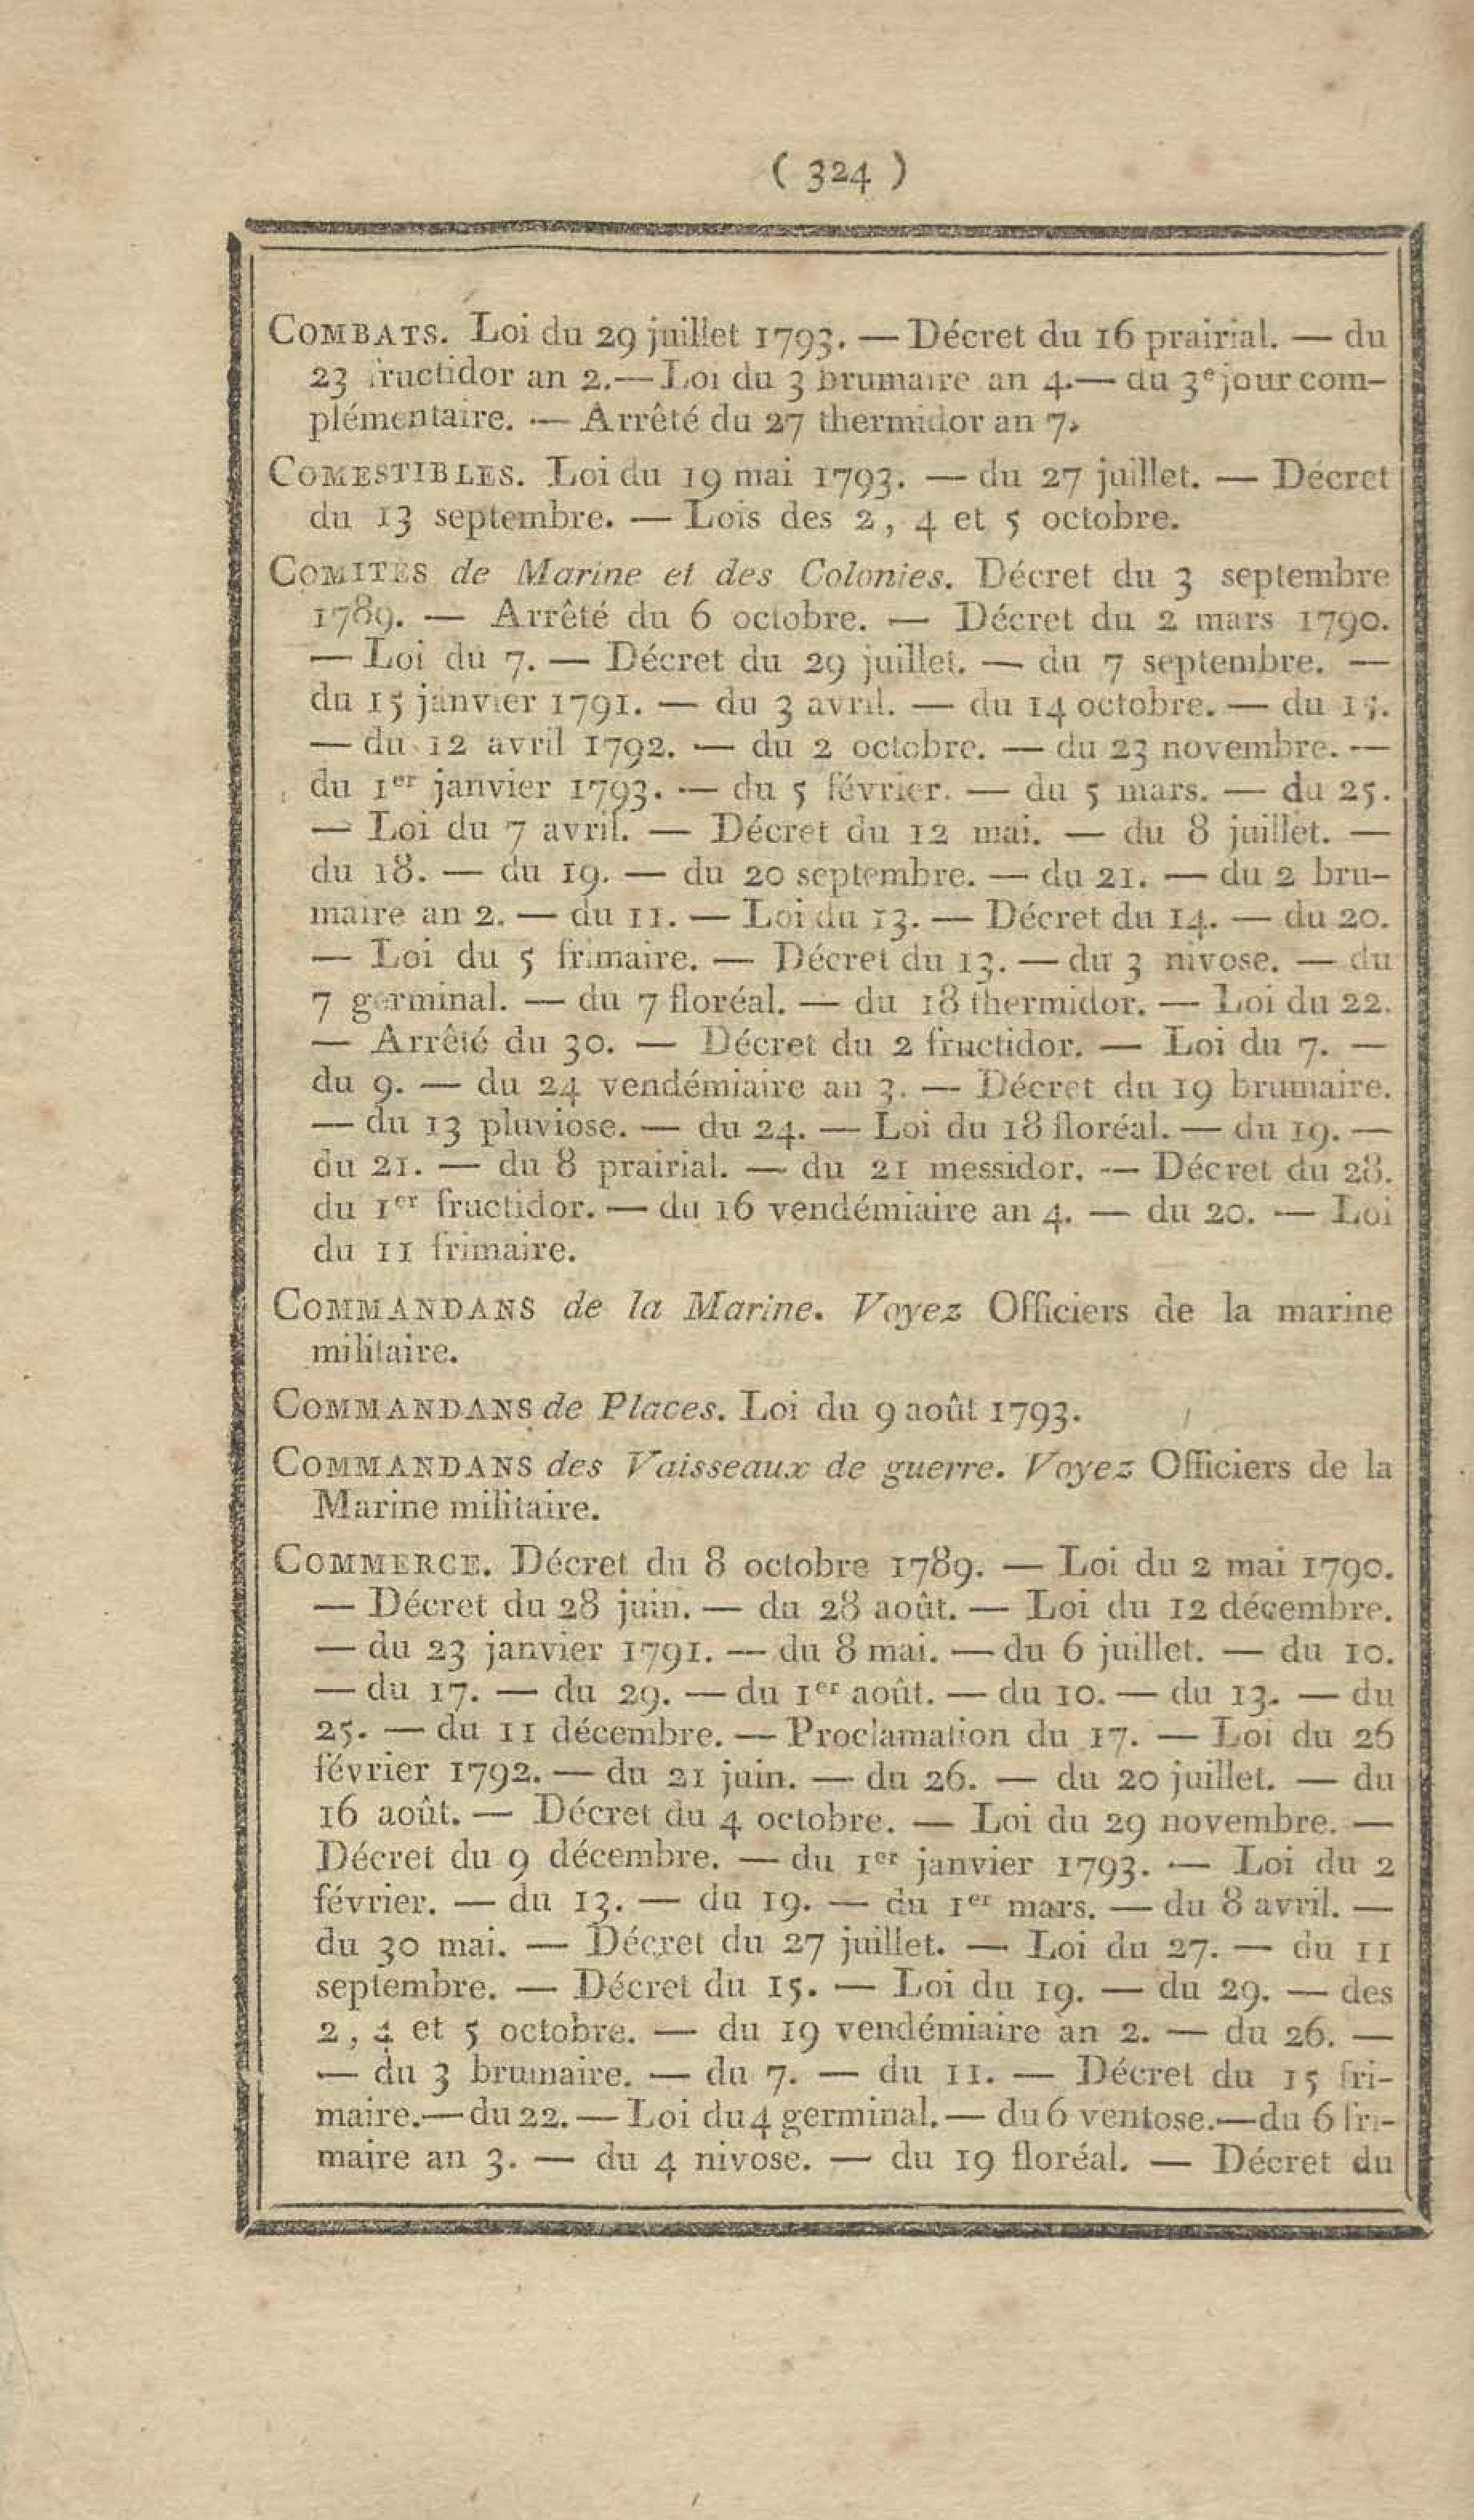 ( 324 )
COMBATS. Loi du 29 juillet 1793. — Décret du 16 prairial. — du
23 fructidor an 2. — Loi du 3 brumaire an 4. — du 3e jour com-
plémentaire. — Arrêté du 27 thermidor an 7.
COMESTIBLES. Loi du 19 mai 1793. — du 27 juillet. — Décret
du 13 septembre. — Lois des 2, 4 et 5 octobre.
COMITÉS de Marine et des Colonies. Décret du 3 septembre
1789. — Arrêté du 6 octobre. — Décret du 2 mars 1790.
— Loi du 7. — Décret du 29 juillet. — du 7 septembre. —
du 15 janvier 1791. — du 3 avril. — du 14 octobre. — du
— du 12 avril 1792. — du 2 octobre. — du 23 novembre. —
du 1er janvier 1793. — du 5 février. — du 5 mars. — du 25.
— Loi du 7 avril. — Décret du 12 mai. — du 8 juillet. —
du 18. — du 19. — du 20 septembre. — du 21. — du 2 bru-
maire an 2. — du 11. — Loi du 13. — Décret du 14. — du 20.
— Loi du 5 frimaire. — Décret du 13. — du 3 nivose. — du
7 germinal. — du 7 floréal. — du 18 thermidor. — Loi du 22.
— Arrêté du 30. — Décret du 2 fructidor. — Loi du 7. —
du 9. — du 24 vendémiaire an 3. — Décret du 19 brumaire.
— du 13 pluviose. — du 24. — Loi du 18 floréal. — du 19. —
du 21. — du 8 prairial. — du 21 messidor. — Décret du 28.
du 1er fructidor. — du 16 vendémiaire an 4. — du 20. — Loi
du 11 frimaire.
COMMANDANS de la Marine. Voyez Officiers de la marine
militaire.
COMMANDANS de Places. Loi du 9 août 1793.
COMMANDANS des Vaisseaux de guerre. Voyez Officiers de la
Marine militaire.
COMMERCE. Décret du 8 octobre 1789. — Loi du 2 mai 1790.
— Décret du 28 juin. — du 28 août. — Loi du 12 décembre.
— du 23 janvier 1791. — du 8 mai. — du 6 juillet. — du 10.
— du 17. — du 29. — du 1er août. — du 10. — du 13. — du
25. — du 11 décembre. — Proclamation du 17. — Loi du 26
février 1792. — du 21 juin. — du 26. — du 20 juillet. — du
16 août. — Décret du 4 octobre. — Loi du 29 novembre. —
Décret du 9 décembre. — du 1er janvier 1793. — Loi du 2
février. — du 13. — du 19. — du 1er mars. — du 8 avril. —
du 30 mai. — Décret du 27 juillet. — Loi du 27. — du 11
septembre. — Décret du 15. — Loi du 19. — du 29. — des
2, 4 et 5 octobre. — du 19 vendémiaire an 2. — du 26. —
— du 3 brumaire. — du 7. — du 11. — Décret du 15 fri-
maire. — du 22. — Loi du 4 germinal. — du 6 ventose. — du 6 fri-
maire an 3. — du 4 nivose. — du 19 floréal. — Décret du